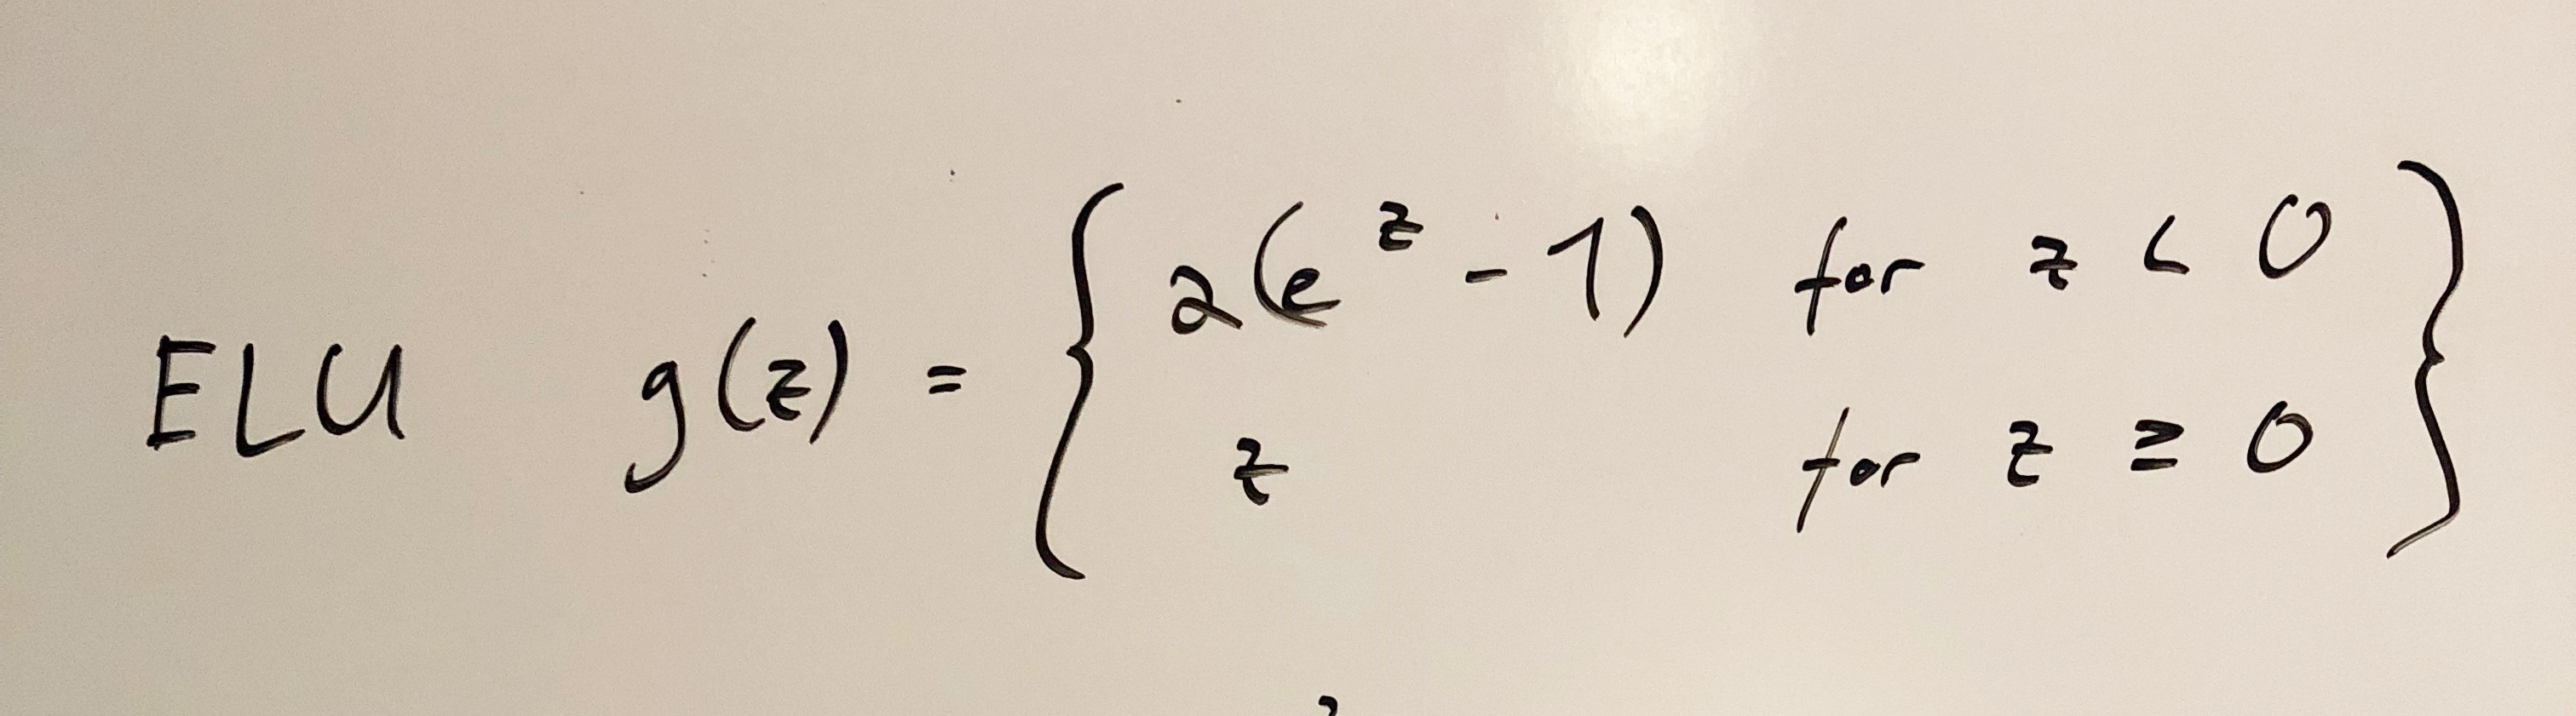 ELU g(z) = { 2(e^z - 1) for z < 0
z for z ≥ 0 }